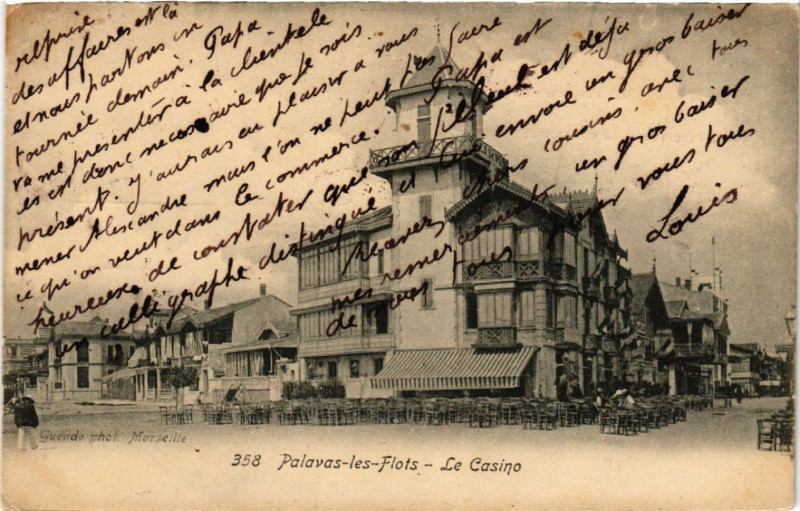 reprise
des affaires est là
et nous partons en
tournée demain. Papa
va me présenter à la clientele
es est donc necessaire que je sois
présent. J'aurais eu plaisir à vous
mener Alexandre mais l'on ne peut pas faire
ce qu'on veut dans le commerce. Papa est
heureux de constater que son filleul est déja
un calligraphe distingué et vous envoie un gros baiser
Recevez, chers cousins, avec tous
mes remerciements un gros baiser
de tous pour vous tous
Louis
Guende phot. Marseille
358 Palavas-les-Flots - Le Casino